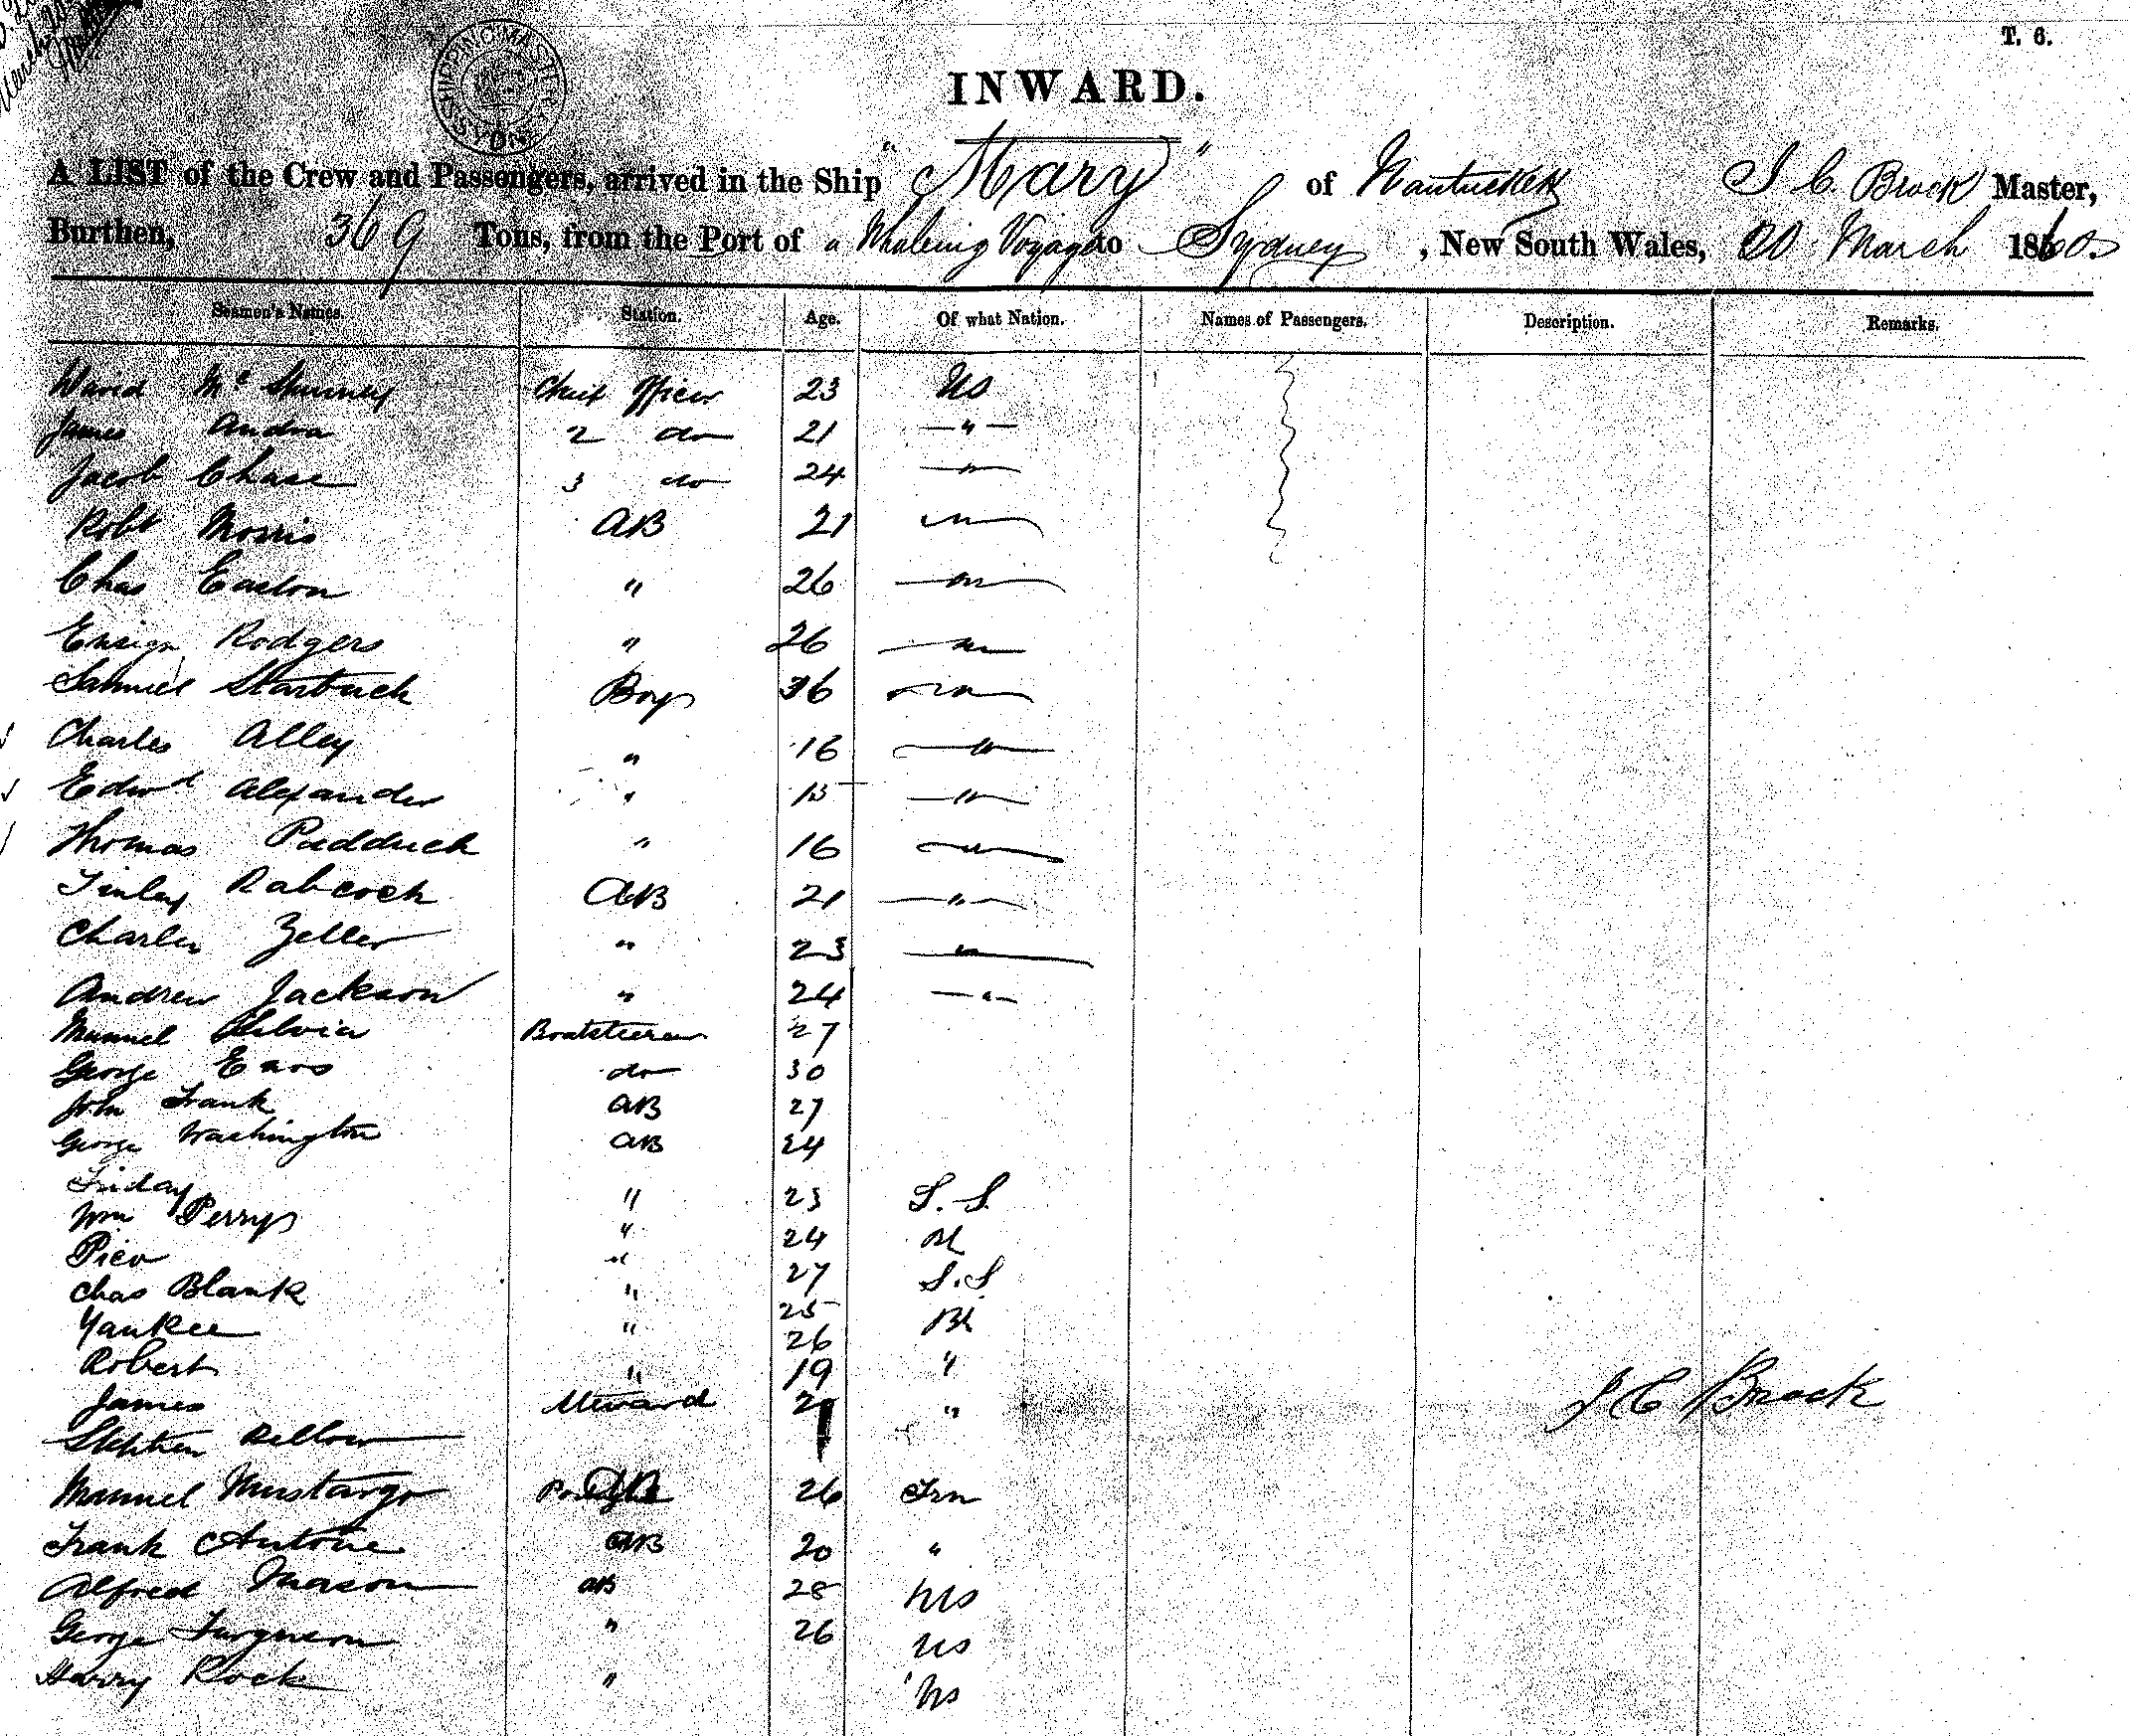 T. 6.
SHIPPING MASTER SYDNEY
INWARD.
A LIST of the Crew and Passengers, arrived in the Ship "Mary" of Nantuckett J C Brock Master,
Burthen, 369 Tons, from the Port of a Whaleing Voyage to Sydney, New South Wales, 20 March 1860
Seamen's Names. Station. Age. Of what Nation. Names of Passengers. Description. Remarks.
David Chief Officer 23 US
James Andra 2 do 21 "
Jacob Chase 3 do 24 "
Robt Morris AB 21 "
Chas Easton " 26 "
Ensign Rodgers " 26 "
Samuel Starbuck Boy 36 "
Charles Alley " 16 "
Edwd Alexander " 15 "
Thomas Padduck " 16 "
Finley Babcock AB 21 "
Charles Zeller " 23 "
Andrew Jackson " 24 "
Manuel Silvia Boatsteerer 27
George Ears do 30
John Frank AB 27
George Washington AB 24
Friday " 23 S. S.
Wm Perry " 24
Pico " 27 S. S
Chas Blank " 25 Bk
Yankee " 26
Robert " 19 "
James Steward "
J C Brock
Stephen
Manuel Mustargo 26
Frank Antone AB 20 "
Alfred Mason AB 28 US
George Furguson " 26 US
Harry Rock " US